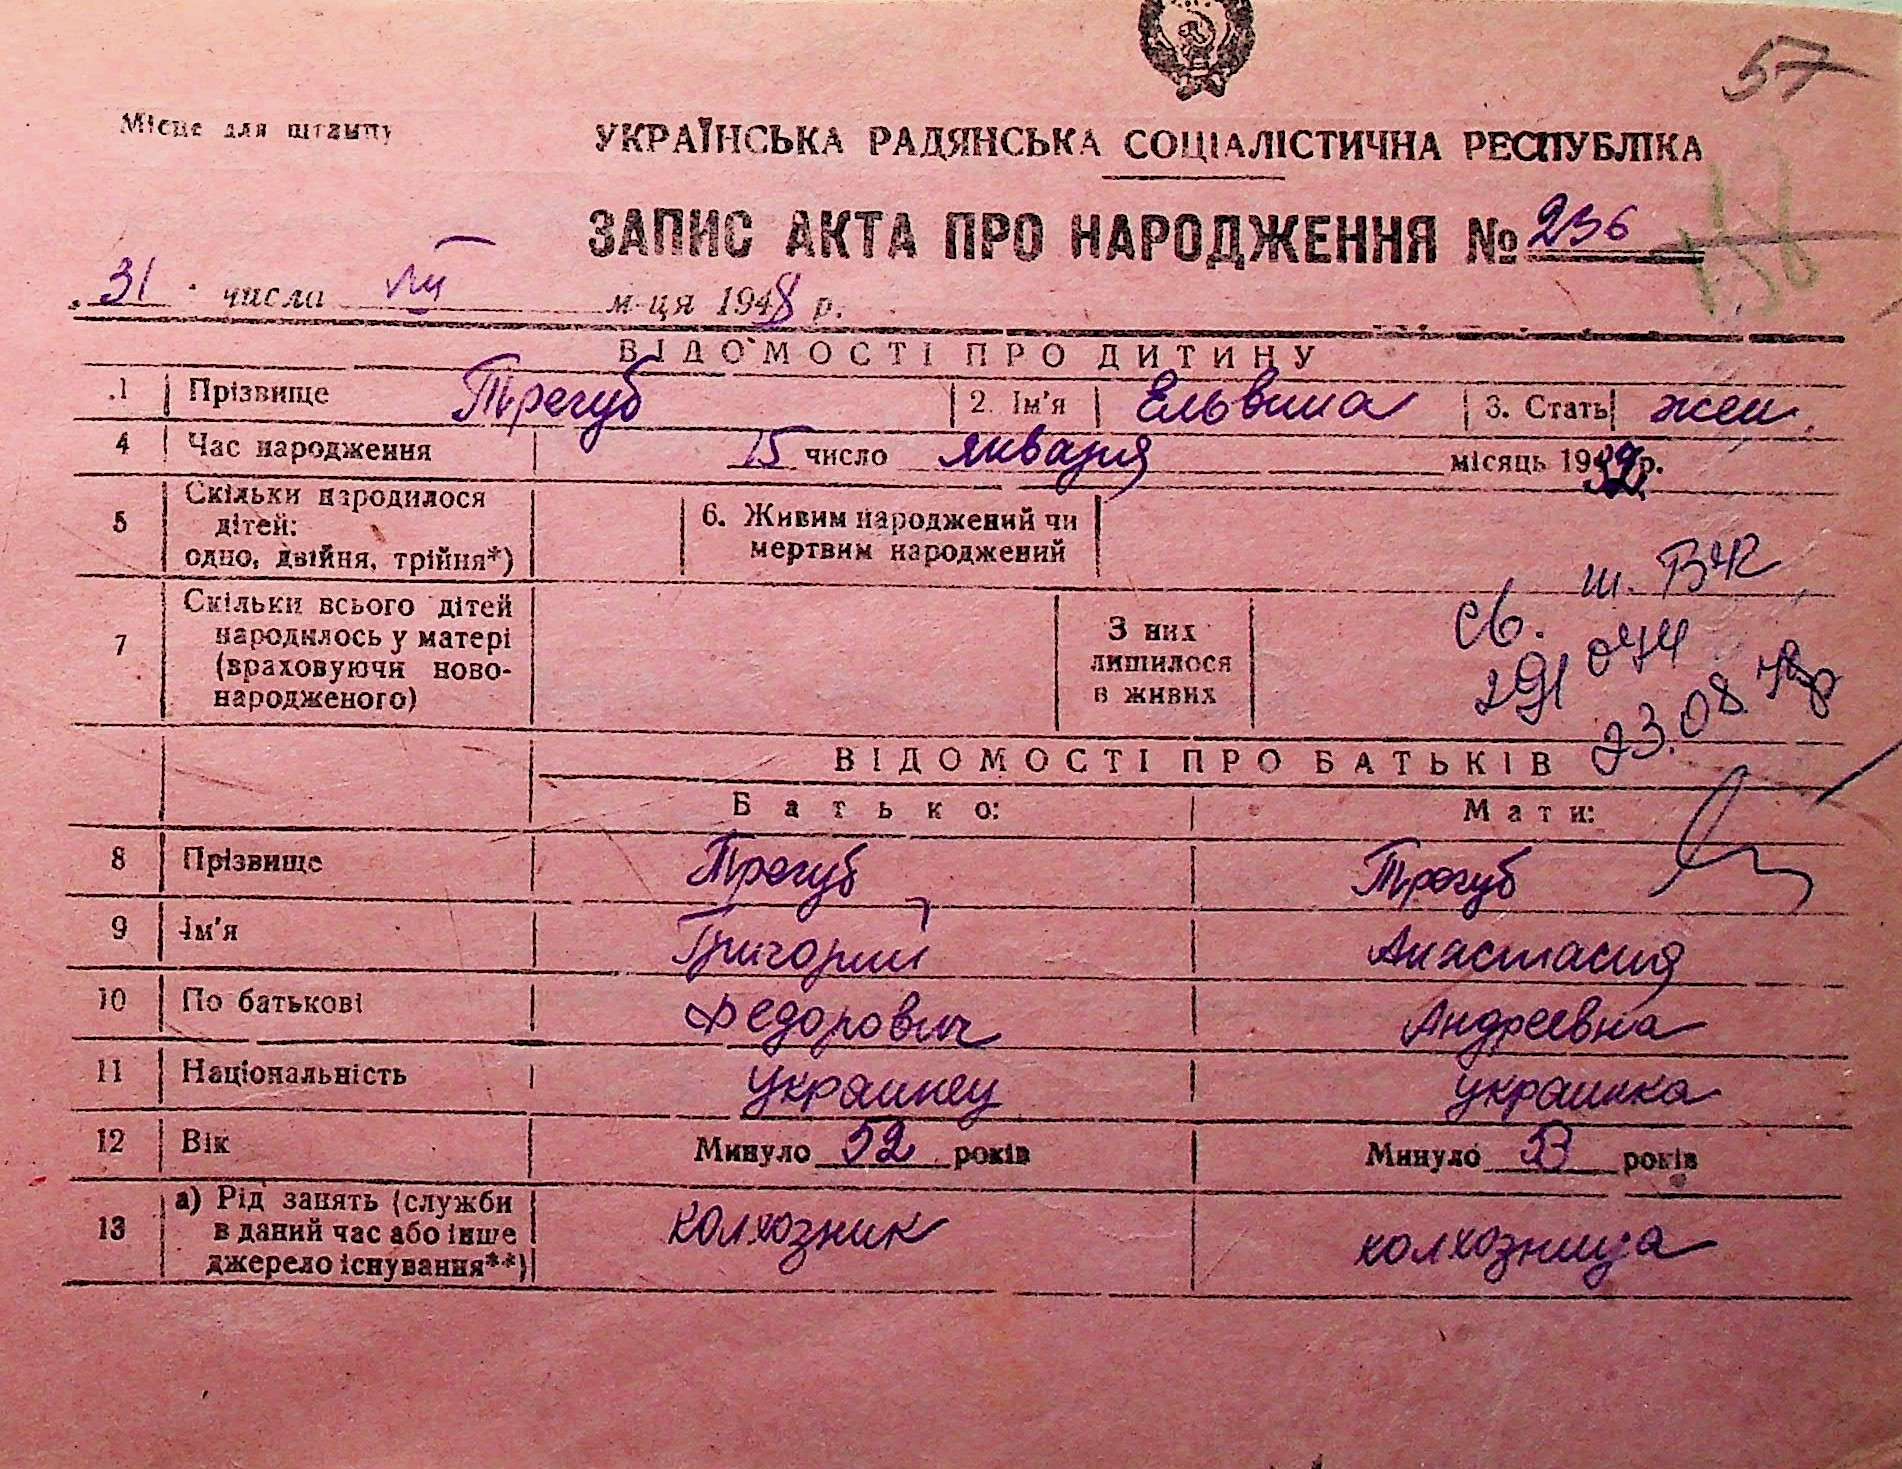 57
Місце для штампу
УКРАЇНСЬКА РАДЯНСЬКА СОЦІАЛІСТИЧНА РЕСПУБЛІКА
ЗАПИС АКТА ПРО НАРОДЖЕННЯ № 236
31 числа м-ця 1948 р.
ВІДОМОСТІ ПРО ДИТИНУ
1 Прізвище Трегуб 2. Ім'я Ельвина 3. Стать жен.
4 Час народження 15 число января місяць 19 р.
5 Скільки народилося
дітей:
одно, двійня, трійня*)
6. Живим народжений чи
мертвим народжений
7 Скільки всього дітей
народилось у матері
(враховуючи ново-
народженого)
З них
лишилося
в живих
св.
291
23.08
ВІДОМОСТІ ПРО БАТЬКІВ
Батько: Мати:
8 Прізвище Трегуб Трегуб
9 Ім'я Григорий Анастасия
10 По батькові Федорович Андреевна
11 Національність украинец украинка
12 Вік Минуло 52 років Минуло років
13 а) Рід занять (служби
в даний час або інше
джерело існування**)
колхозник колхозница